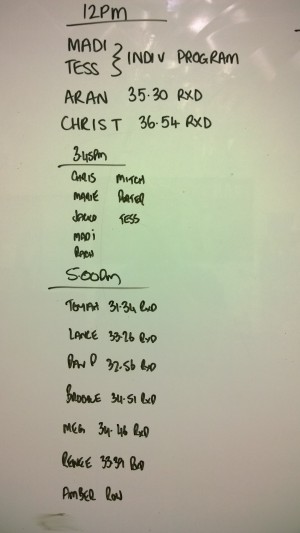 12PM
MADI
TESS } INDIV PROGRAM
ARAN 35.30 RXD
CHRIS T 36.54 RXD
3.45PM
CHRIS MITCH
MARIE PORTER
JACKO TESS
MADI
RACH
5.00PM
31.34 RXD
LANCE 33.26 RXD
DAN P 32.56 RXD
BROOKE 34.51 RXD
MEG 34.46 RXD
RENEE 33.39 RXD
AMBER ROW